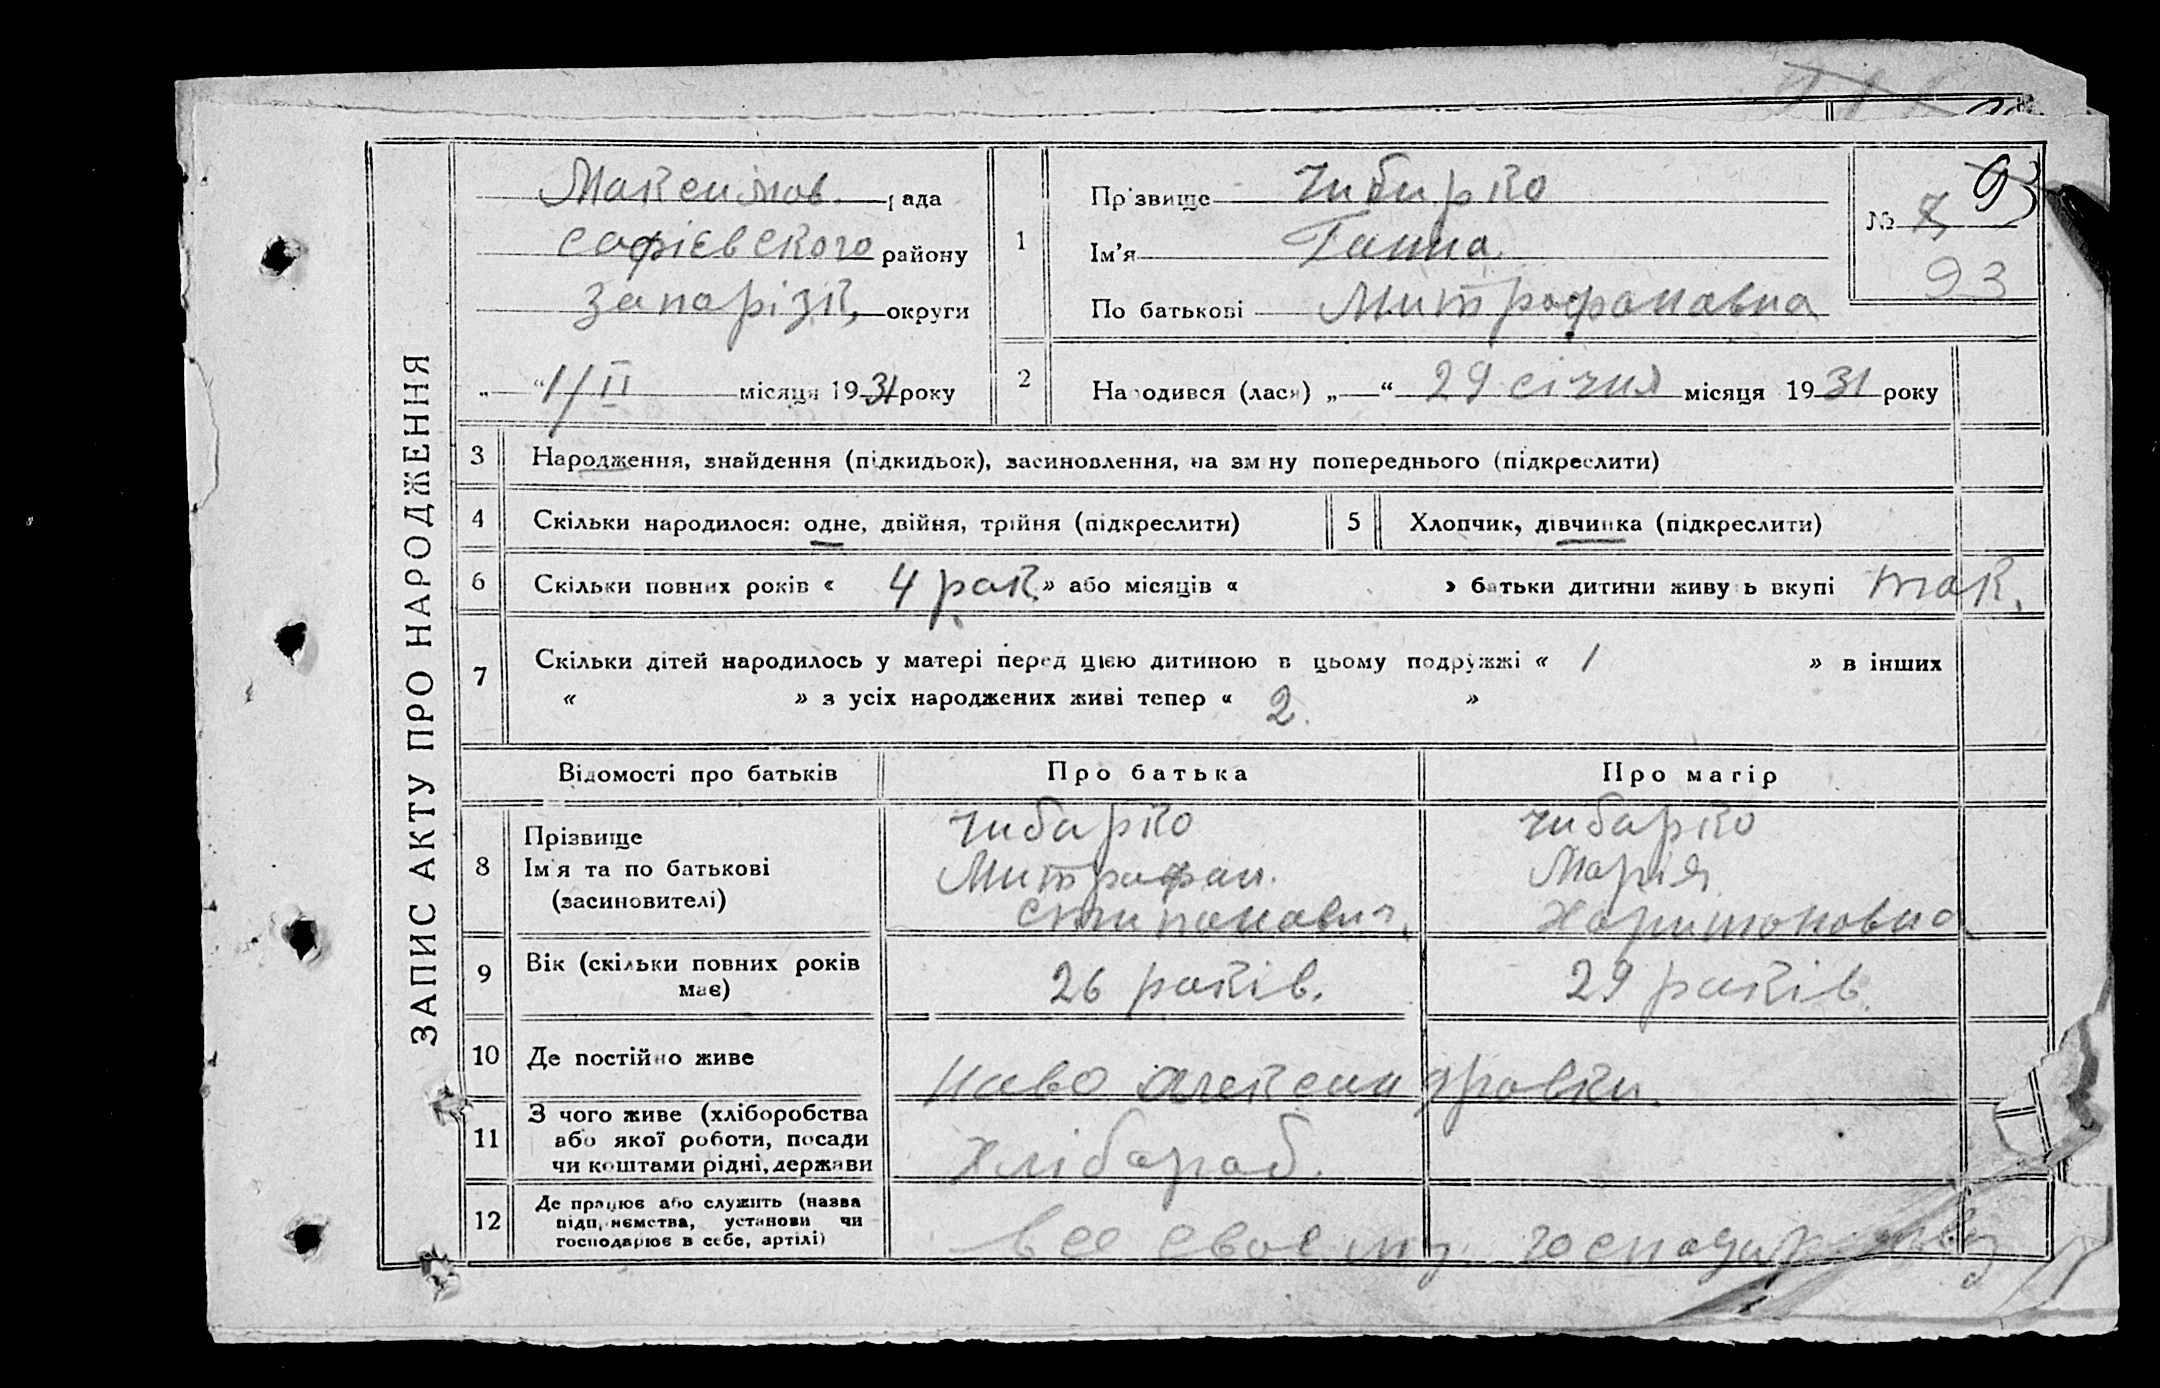 ЗАПИС АКТУ ПРО НАРОДЖЕННЯ
Максимов. рада
софієвского району
запорізк, округи
„ “ 1/II місяця 1931 року
1
Прізвище Чибирко
Ім’я Ганна.
По батькові Митрофановна
№ 7, 93
93
2 Народився (лася) „ “ 29 січня місяця 1931 року
3 Народження, знайдення (підкидьок), засиновлення, на зміну попереднього (підкреслити)
4 Скільки народилося: одне, двійня, трійня (підкреслити)
5 Хлопчик, дівчинка (підкреслити)
6 Скільки повних років « 4 рок » або місяців « » батьки дитини живуть вкупі так.
7 Скільки дітей народилось у матері перед цією дитиною в цьому подружжі « 1 » в інших
« » з усіх народжених живі тепер « 2. »
Відомості про батьків Про батька Про матір
8 Прізвище
Ім'я та по батькові
(засиновителі)
Чибарко
Митрофан.
Стипанович,
Чибарко
Марія
Харитоновна
9 Вік (скільки повних років
має)
26 років.
29 років.
10 Де постійно живе
Ново Александровки.
11 З чого живе (хліборобства
або якої роботи, посади
чи коштами рідні, держави
Хлібороб.
12 Де працює або служить (назва
підприємства, установи чи
господарює в себе, артілі)
своєму господарству